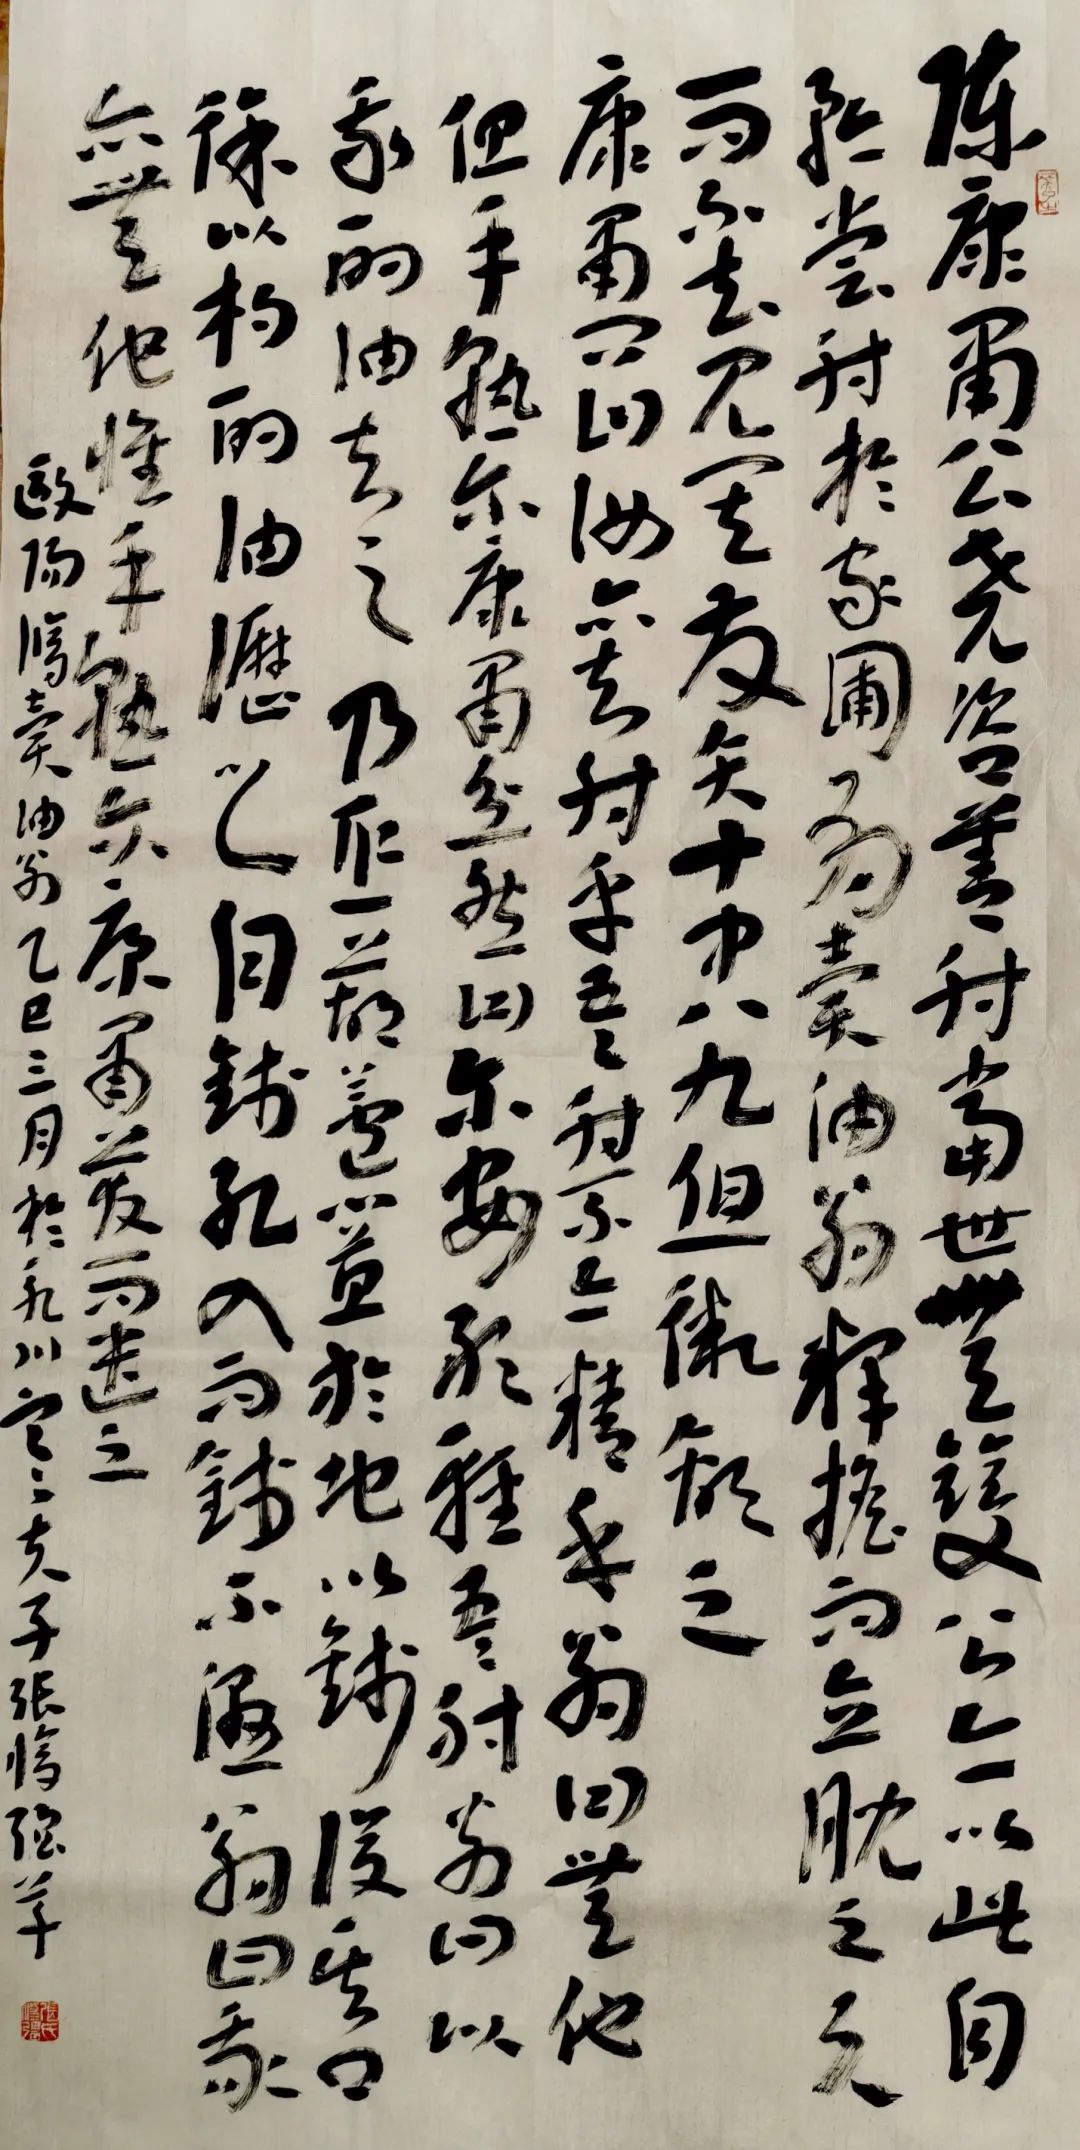 陳康肅公堯咨善射當世無雙公亦以此自
矜嘗射於家圃有賣油翁釋擔而立睨之久
而不去見其發矢十中八九但微頷之
康肅問曰汝亦知射乎吾射不亦精乎翁曰無他
但手熟尔康肅忿然曰尔安敢輕吾射翁曰以
我酌油知之乃取一葫蘆置於地以錢覆其口
徐以杓酌油瀝之自錢孔入而錢不濕翁曰我
亦無他惟手熟尔康肅笑而遣之
歐陽脩賣油翁乙巳三月於永川夫子張強草